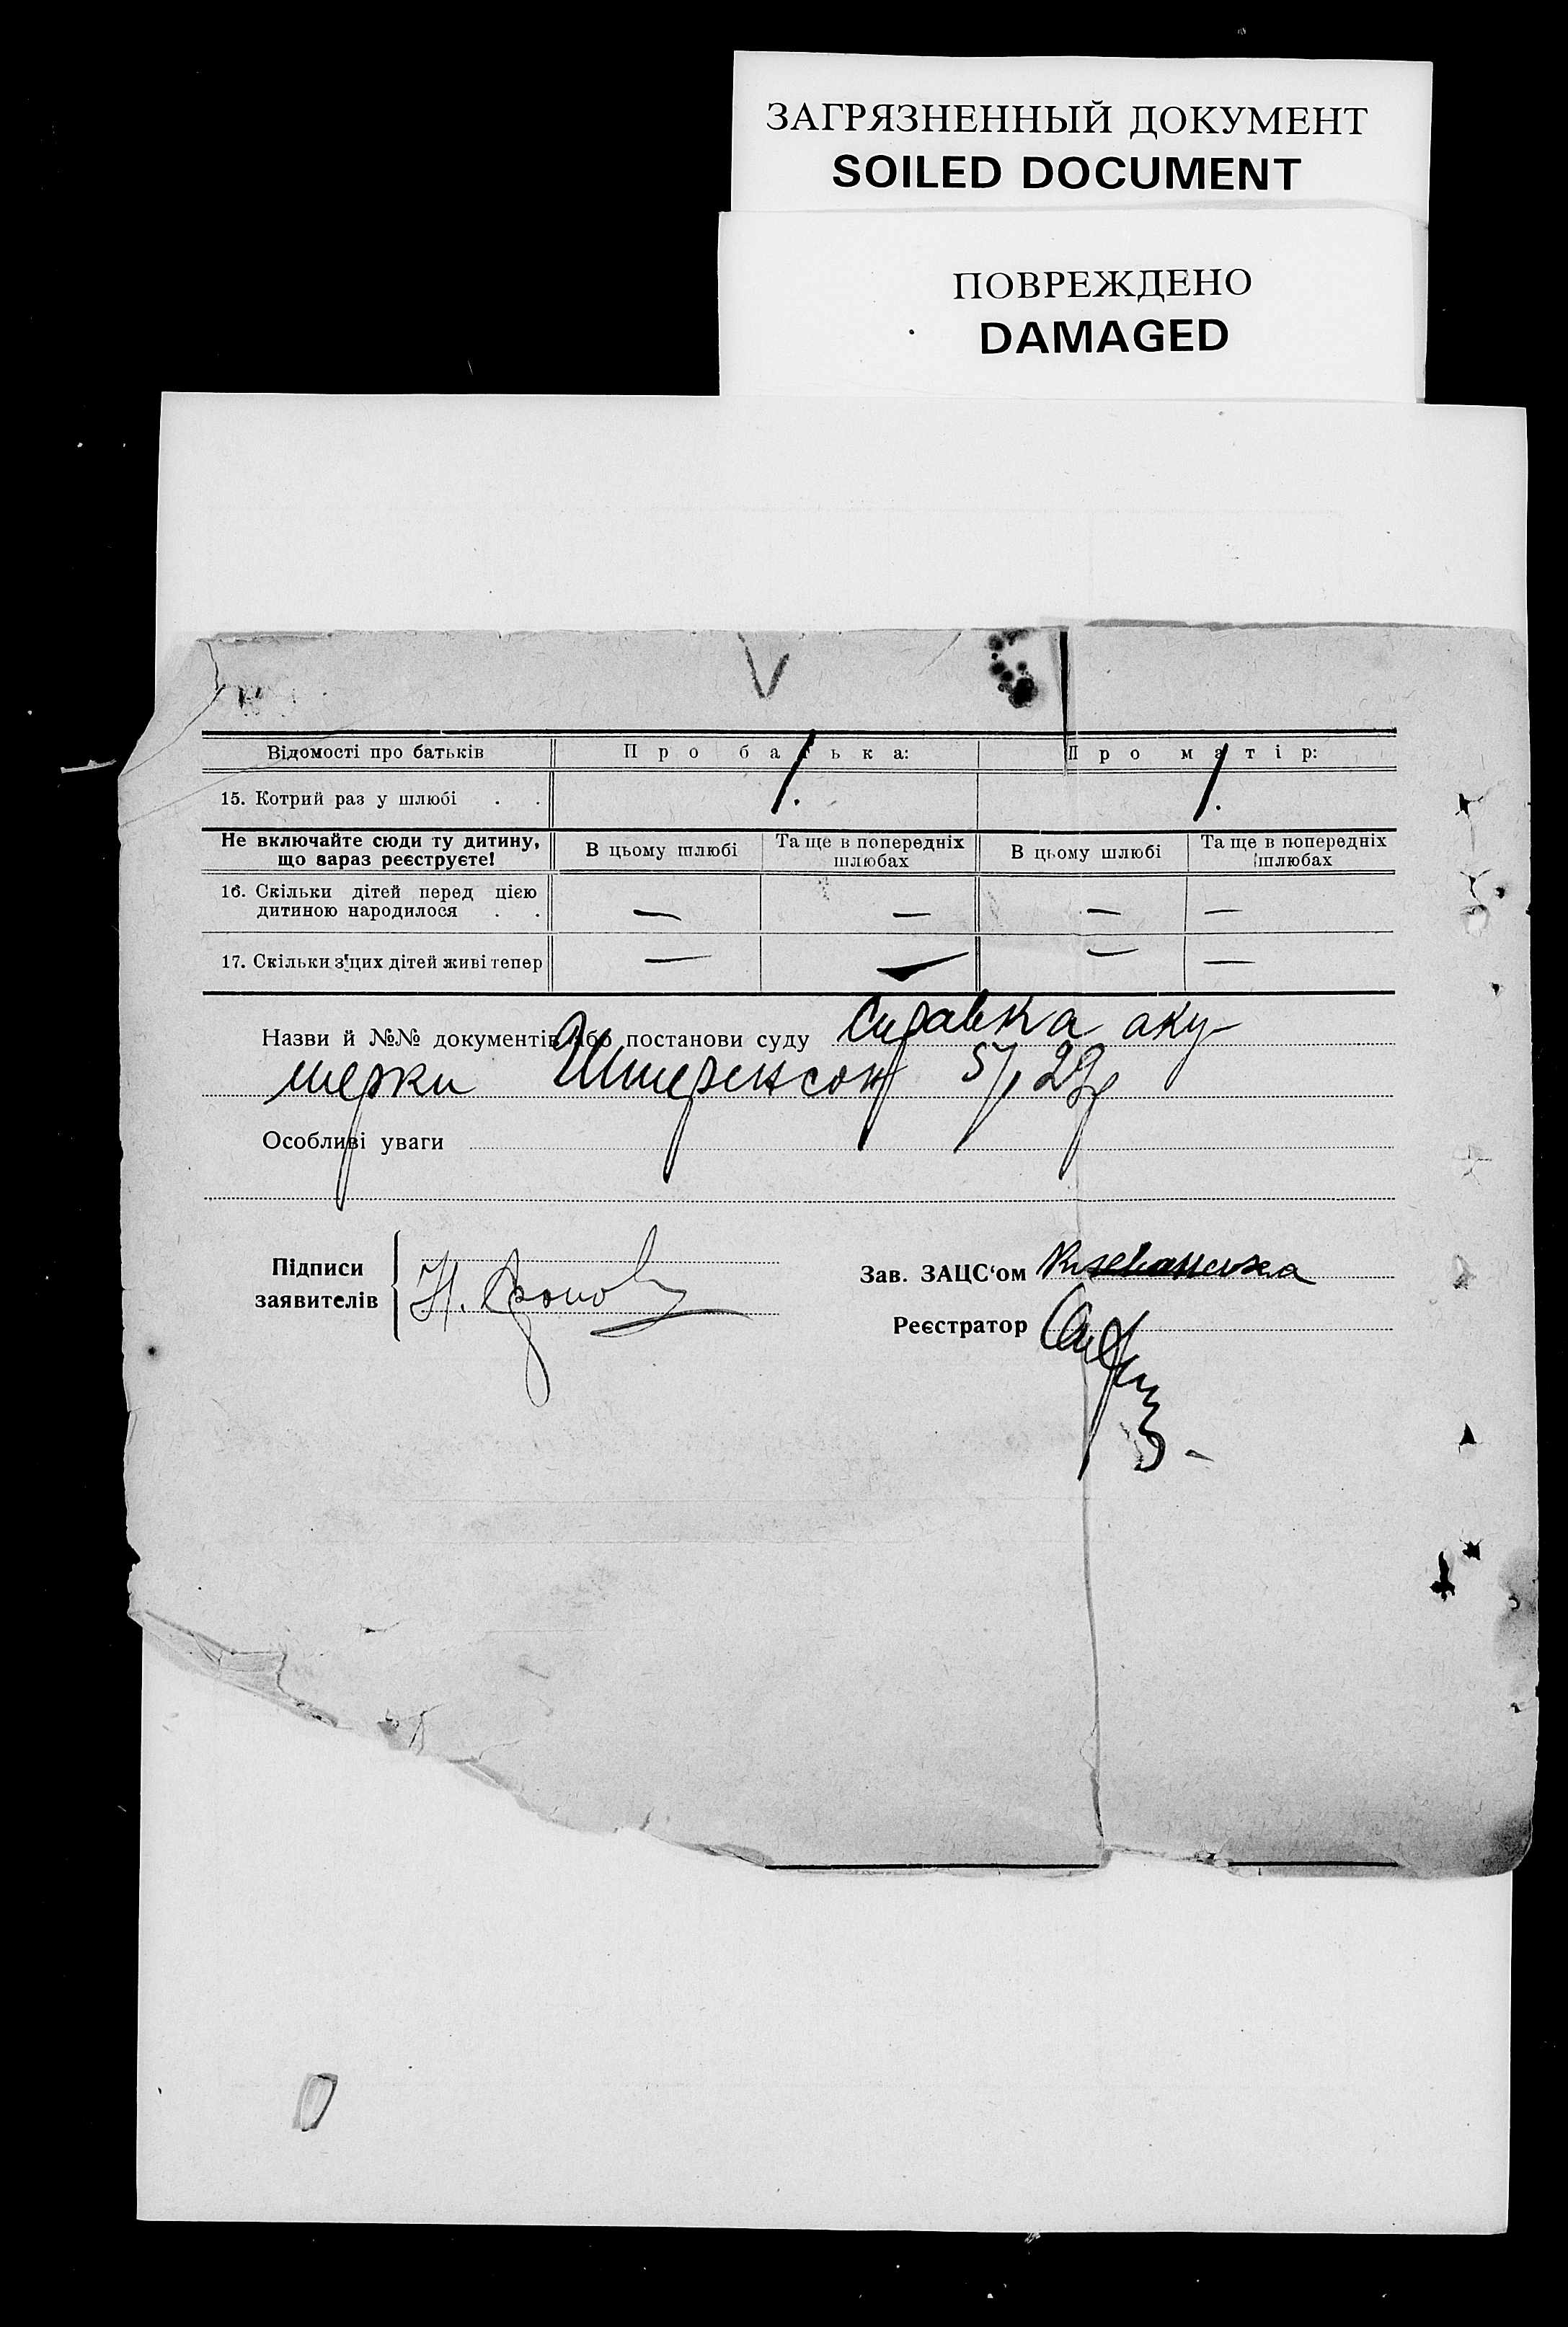 ЗАГРЯЗНЕННЫЙ ДОКУМЕНТ
SOILED DOCUMENT
ПОВРЕЖДЕНО
DAMAGED
Відомості про батьків Про батька: Про матір:
15. Котрий раз у шлюбі . . 1. 1.
Не включайте сюди ту дитину, що зараз реєструєте! В цьому шлюбі Та ще в попередніх шлюбах В цьому шлюбі Та ще в попередніх шлюбах
16. Скільки дітей перед цією
дитиною народилося . . — — — —
17. Скільки з'цих дітей живі тепер — — — —
Назви й №№ документів або постанови суду Справка аку-
шерки 5/I 29р
Особливі уваги
Підписи
заявителів
Зав. ЗАЦС‘ом
Реєстратор